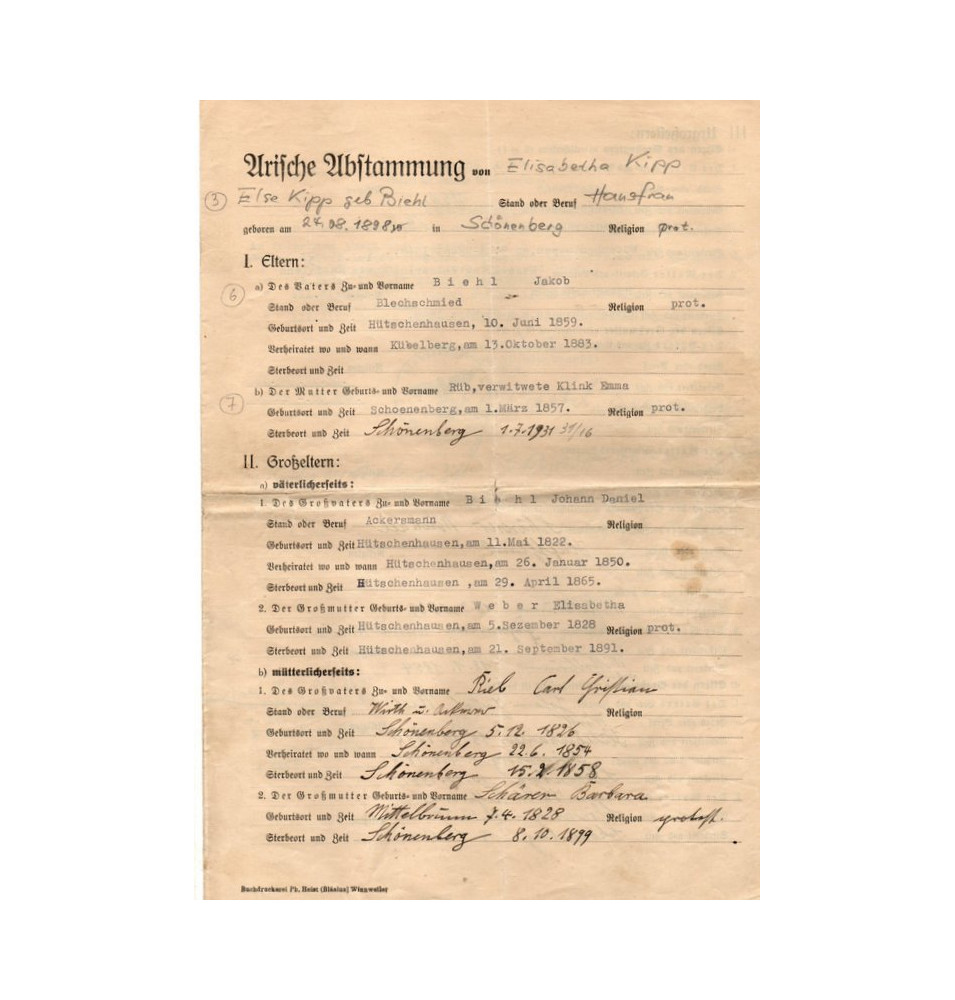 Arische Abstammung von Elisabetha Kipp
3 Else Kipp geb Biehl Stand oder Beruf Hausfrau
geboren am 27.08.1898 in Schönenberg Religion prot.
I. Eltern:
a) Des Vaters Zu= und Vorname Biehl Jakob
6 Stand oder Beruf Blechschmied Religion prot.
Geburtsort und Zeit Hütschenhausen, 10. Juni 1859.
Verheiratet wo und wann Kübelberg,am 13.Oktober 1883.
Sterbeort und Zeit
b) Der Mutter Geburts= und Vorname Rüb,verwitwete Klink Emma
7 Geburtsort und Zeit Schoenenberg,am 1.März 1857. Religion prot.
Sterbeort und Zeit Schönenberg 1.7.1931 31/16
II. Großeltern:
a) väterlicherseits:
1. Des Großvaters Zu= und Vorname Biehl Johann Daniel
Stand oder Beruf Ackersmann Religion
Geburtsort und Zeit Hütschenhausen,am 11.Mai 1822.
Verheiratet wo und wann Hütschenhausen,am 26. Januar 1850.
Sterbeort und Zeit Hütschenhausen ,am 29. April 1865.
2. Der Großmutter Geburts= und Vorname Weber Elisabetha
Geburtsort und Zeit Hütschenhausen,am 5.Sezember 1828 Religion prot.
Sterbeort und Zeit Hütschenhausen,am 21. September 1891.
b) mütterlicherseits:
1. Des Großvaters Zu= und Vorname Carl Christian
Stand oder Beruf Wirth u. Religion
Geburtsort und Zeit Schönenberg 5.12.1826
Verheiratet wo und wann Schönenberg 22.6.1854
Sterbeort und Zeit Schönenberg
2. Der Großmutter Geburts= und Vorname Schärer Barbara
Geburtsort und Zeit Mittelbrunn 7.4.1828 Religion protest.
Sterbeort und Zeit Schönenberg 8.10.1899
Buchdruckerei Ph. Heist (Bläsius) Winnweiler